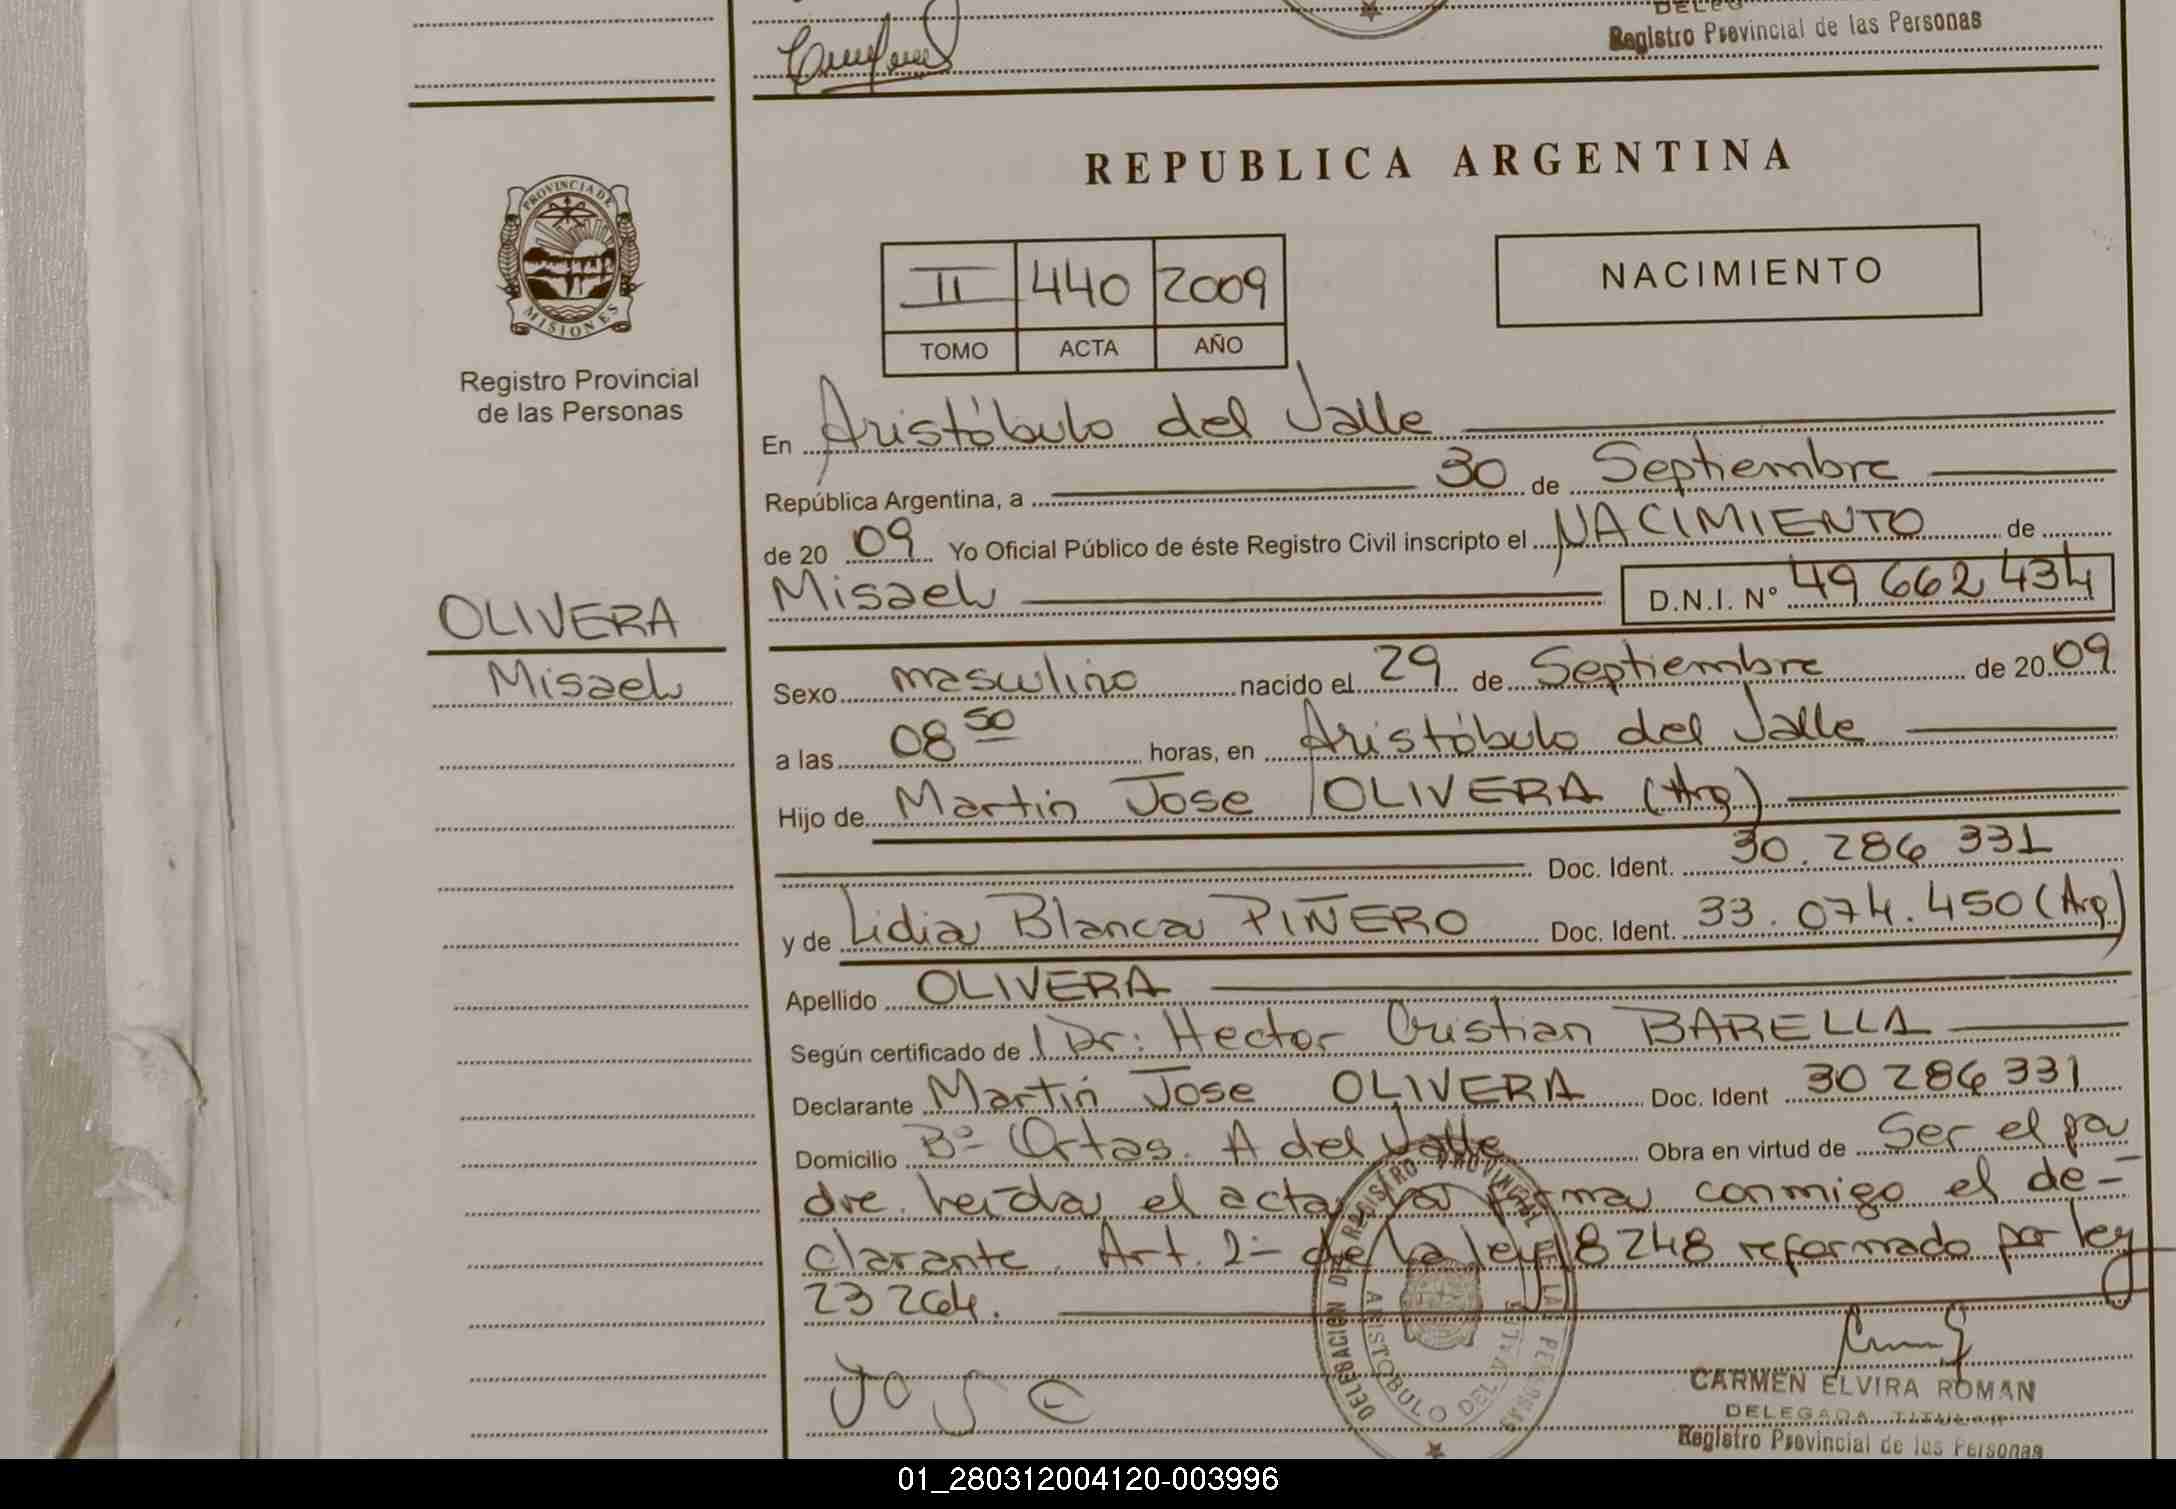 Registro Provincial de las Personas
REPUBLICA ARGENTINA
PROVINCIA DE MISIONES
Registro Provincial
de las Personas
II 440 2009
TOMO ACTA AÑO
NACIMIENTO
En Aristóbulo del Valle
República Argentina, a 30 de Septiembre
de 20 09 Yo Oficial Público de éste Registro Civil inscripto el NACIMIENTO de
OLIVERA
Misael
Misael D.N.I. Nº 49 662 434
Sexo masculino nacido el 29 de Septiembre de 20 09
a las 08 50 horas, en Aristóbulo del Valle
Hijo de Martin Jose OLIVERA (Arg)
Doc. Ident. 30.286 331
y de Lidia Blanca PIÑERO Doc. Ident. 33.074.450 (Arg)
Apellido OLIVERA
Según certificado de Dr: Hector Cristian BARELLA
Declarante Martin Jose OLIVERA Doc. Ident 30 286 331
Domicilio Bº Ortas. A del Valle Obra en virtud de Ser el pa
dre. Leída el acta, la firma conmigo el de-
clarante. Art. 2- de la ley 18248 reformado por ley
23264.
JOSE
DELEGACION DEL REGISTRO PROVINCIAL DE LAS PERSONAS
ARISTOBULO DEL VALLE
CARMEN ELVIRA ROMAN
DELEGADA TITULAR
Registro Provincial de las Personas
01_280312004120-003996